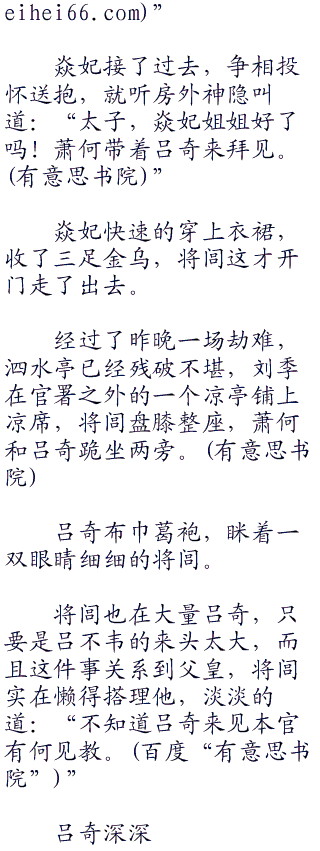 eihei66.com)”
焱妃接了过去，争相投
怀送抱，就听房外神隐叫
道：“太子，焱妃姐姐好了
吗！萧何带着吕奇来拜见。
(有意思书院)”
焱妃快速的穿上衣裙，
收了三足金乌，将闾这才开
门走了出去。
经过了昨晚一场劫难，
泗水亭已经残破不堪，刘季
在官署之外的一个凉亭铺上
凉席，将闾盘膝整座，萧何
和吕奇跪坐两旁。(有意思书
院)
吕奇布巾葛袍，眯着一
双眼睛细细的将闾。
将闾也在大量吕奇，只
要是吕不韦的来头太大，而
且这件事关系到父皇，将闾
实在懒得搭理他，淡淡的
道：“不知道吕奇来见本官
有何见教。(百度“有意思书
院”)”
吕奇深深